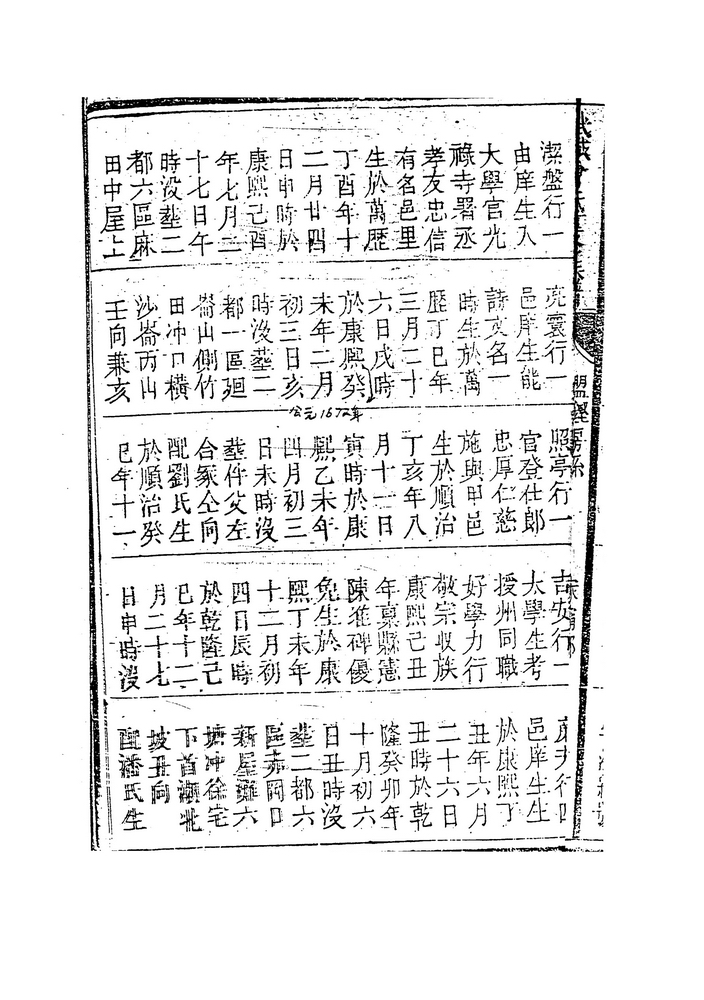 潔盤行一
由庠生入
大學官光
祿寺署丞
孝友忠信
有名邑里
生於萬歷
丁酉年十
二月廿四
日申時於
康熙己酉
年七月二
十七日午
時没塟二
都六區麻
田中屋上
亮寰行一
邑庠生能
詩文名一
時生於萬
歷丁巳年
三月二十
六日戌時
於康熙癸
未年二月
初三日亥
時没塟二
都一區廻
崙山側竹
田冲口橫
沙崙丙山
壬向兼亥
公元1672年
照亭行一
官登仕郎
忠厚仁慈
施與甲邑
生於順治
丁亥年八
月十一日
寅時於康
熙乙未年
四月初三
日未時没
塟伴父左
合冢仝向
配劉氏生
於順治癸
巳年十一
吉安行一
太學生考
授州同職
好學力行
敬宗收族
康熙己丑
年稟縣憲
陳進碑優
免生於康
熙丁未年
十二月初
四日辰時
於乾隆己
巳年十二
月二十七
日申時没
行四
邑庠生生
於康熙丁
丑年六月
二十六日
丑時於乾
隆癸卯年
十月初六
日丑時没
塟二都六
區赤岡口
新屋灘六
塘冲徐宅
下首潮牝
坡丑向
配潘氏生